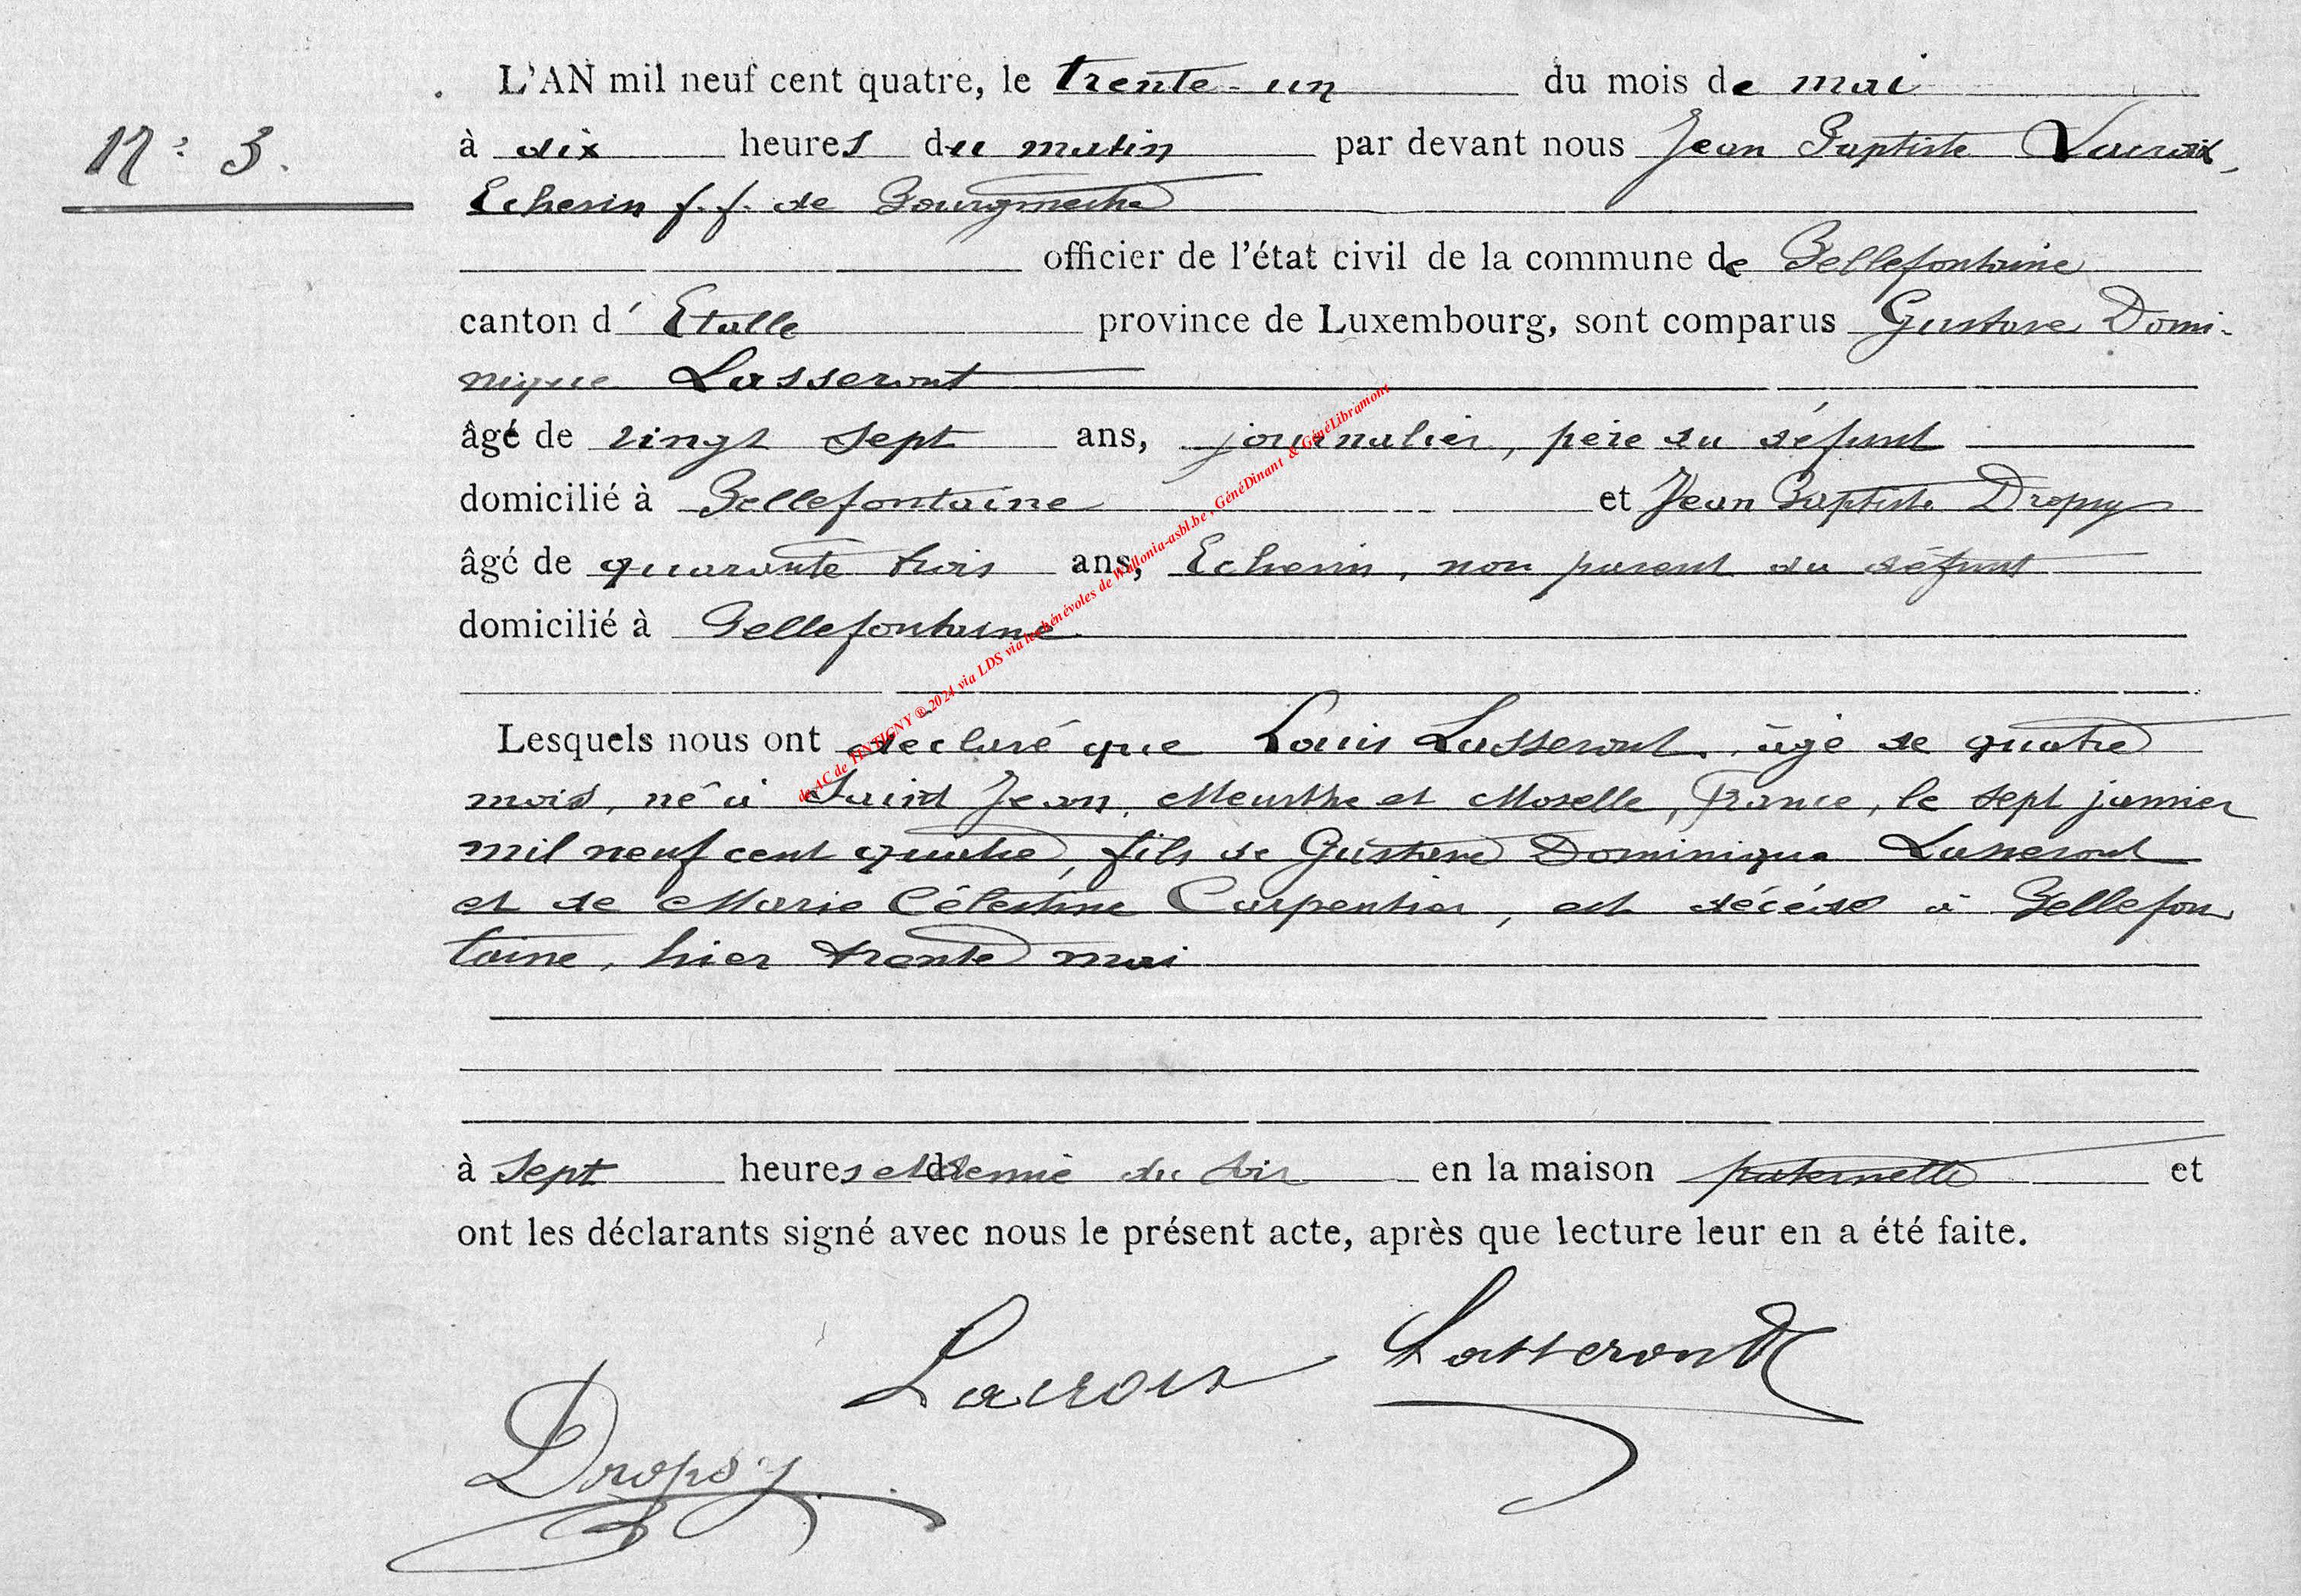 L'AN mil neuf cent quatre, le trente-un du mois de mai
N: 3. à dix heures du matin par devant nous Jean Baptiste Lacroix,
Echevin f.f. de Bourgmestre
officier de l'état civil de la commune de Bellefontaine
canton d' Etalle province de Luxembourg, sont comparus Gustave Domi-
nique Lasseront
âgé de vingt sept ans, journalier, père du défunt
domicilié à Bellefontaine et Jean Baptiste Dropsy
âgé de quarante trois ans, Echevin, non parent du défunt
domicilié à Bellefontaine
Lesquels nous ont déclaré que Louis Lasseront, âgé de quatre
mois, né à Saint Jean, Meurthe et Moselle, France, le sept janvier
mil neuf cent quatre, fils de Gustave Dominique Lasseront
et de Marie Célestine Carpentier, est décédé à Bellefon
taine, hier trente mai
à sept heures et demie du soir en la maison paternelle et
ont les déclarants signé avec nous le présent acte, après que lecture leur en a été faite.
Lasseront
Lacroix
Dropsy
de AC de TINTIGNY ® 2024 via LDS via les bénévoles de Wallonia-asbl.be , GénéDinant & GénéLibramont